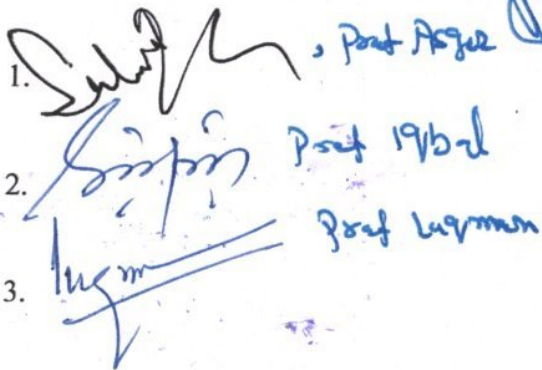 1. , Prof Asger
2. Prof Iqbal
3. luqm Prof Luqman